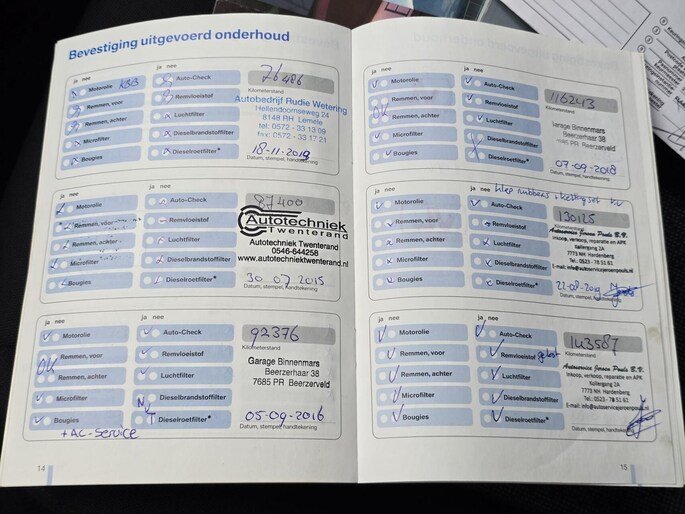 Bevestiging uitgevoerd onderhoud
ja nee
ja nee
Motorolie
Auto-Check
76486
Remmen, voor
Remvloeistof
Kilometerstand
Remmen, achter
Luchtfilter
Autobedrijf Rudie Wetering
Hellendoornseweg 24
8148 RH Lemele
tel: 0572 - 33 13 09
fax: 0572 - 33 17 21
Microfilter
Dieselbrandstoffilter
Bougies
Dieselroetfilter*
Datum, stempel, handtekening
ja nee
ja nee
Motorolie
Auto-Check
87400
Remmen, voor
Remvloeistof
Autotechniek
Twenterand
Remmen, achter
Luchtfilter
Autotechniek Twenterand
0546-644258
www.autotechniektwenterand.nl
Microfilter
Bougies
Dieselroetfilter*
30 07 2015
Datum, stempel, handtekening
ja nee
ja nee
Motorolie
Auto-Check
92376
Kilometerstand
OK
Remmen, voor
Remvloeistof
Garage Binnenmars
Beerzerhaar 38
7685 PR Beerzerveld
Remmen, achter
Luchtfilter
Microfilter
Dieselbrandstoffilter
Bougies
Dieselroetfilter*
05-09-2016
Datum, stempel, handtekening
+ AC-Service
14
ja nee
ja nee
Motorolie
Auto-Check
116243
Kilometerstand
OK
Remmen, voor
Remvloeistof
Remmen, achter
Luchtfilter
Garage Binnenmars
Beerzerhaar 38
7685 PR Beerzerveld
Microfilter
Dieselbrandstoffilter
Bougies
Dieselroetfilter*
07-09-2018
Datum, stempel, handtekening
ja nee
ja nee
Motorolie
Auto-Check
130125
Remmen, voor
Remvloeistof
Autoservice Jeroen Pouls B.V.
inkoop, verkoop, reparatie en APK
Kollergang 2A
7773 NH Hardenberg
Tel.: 0523 - 78 51 62
E-mail: info@autoservicejeroenpouls.nl
Remmen, achter
Luchtfilter
Microfilter
Dieselbrandstoffilter
Bougies
Dieselroetfilter*
Datum, stempel, handtekening
ja nee
ja nee
Motorolie
Auto-Check
143587
Remmen, voor
Remvloeistof
getest
Autoservice Jeroen Pouls B.V.
Inkoop, verkoop, reparatie en APK
Kollergang 2A
7773 NH Hardenberg
Tel.: 0523 - 78 51 62
E-mail: info@autoservicejeroenpouls.nl
Remmen, achter
Luchtfilter
Microfilter
Dieselbrandstoffilter
Bougies
Dieselroetfilter*
Datum, stempel, handtekening
15